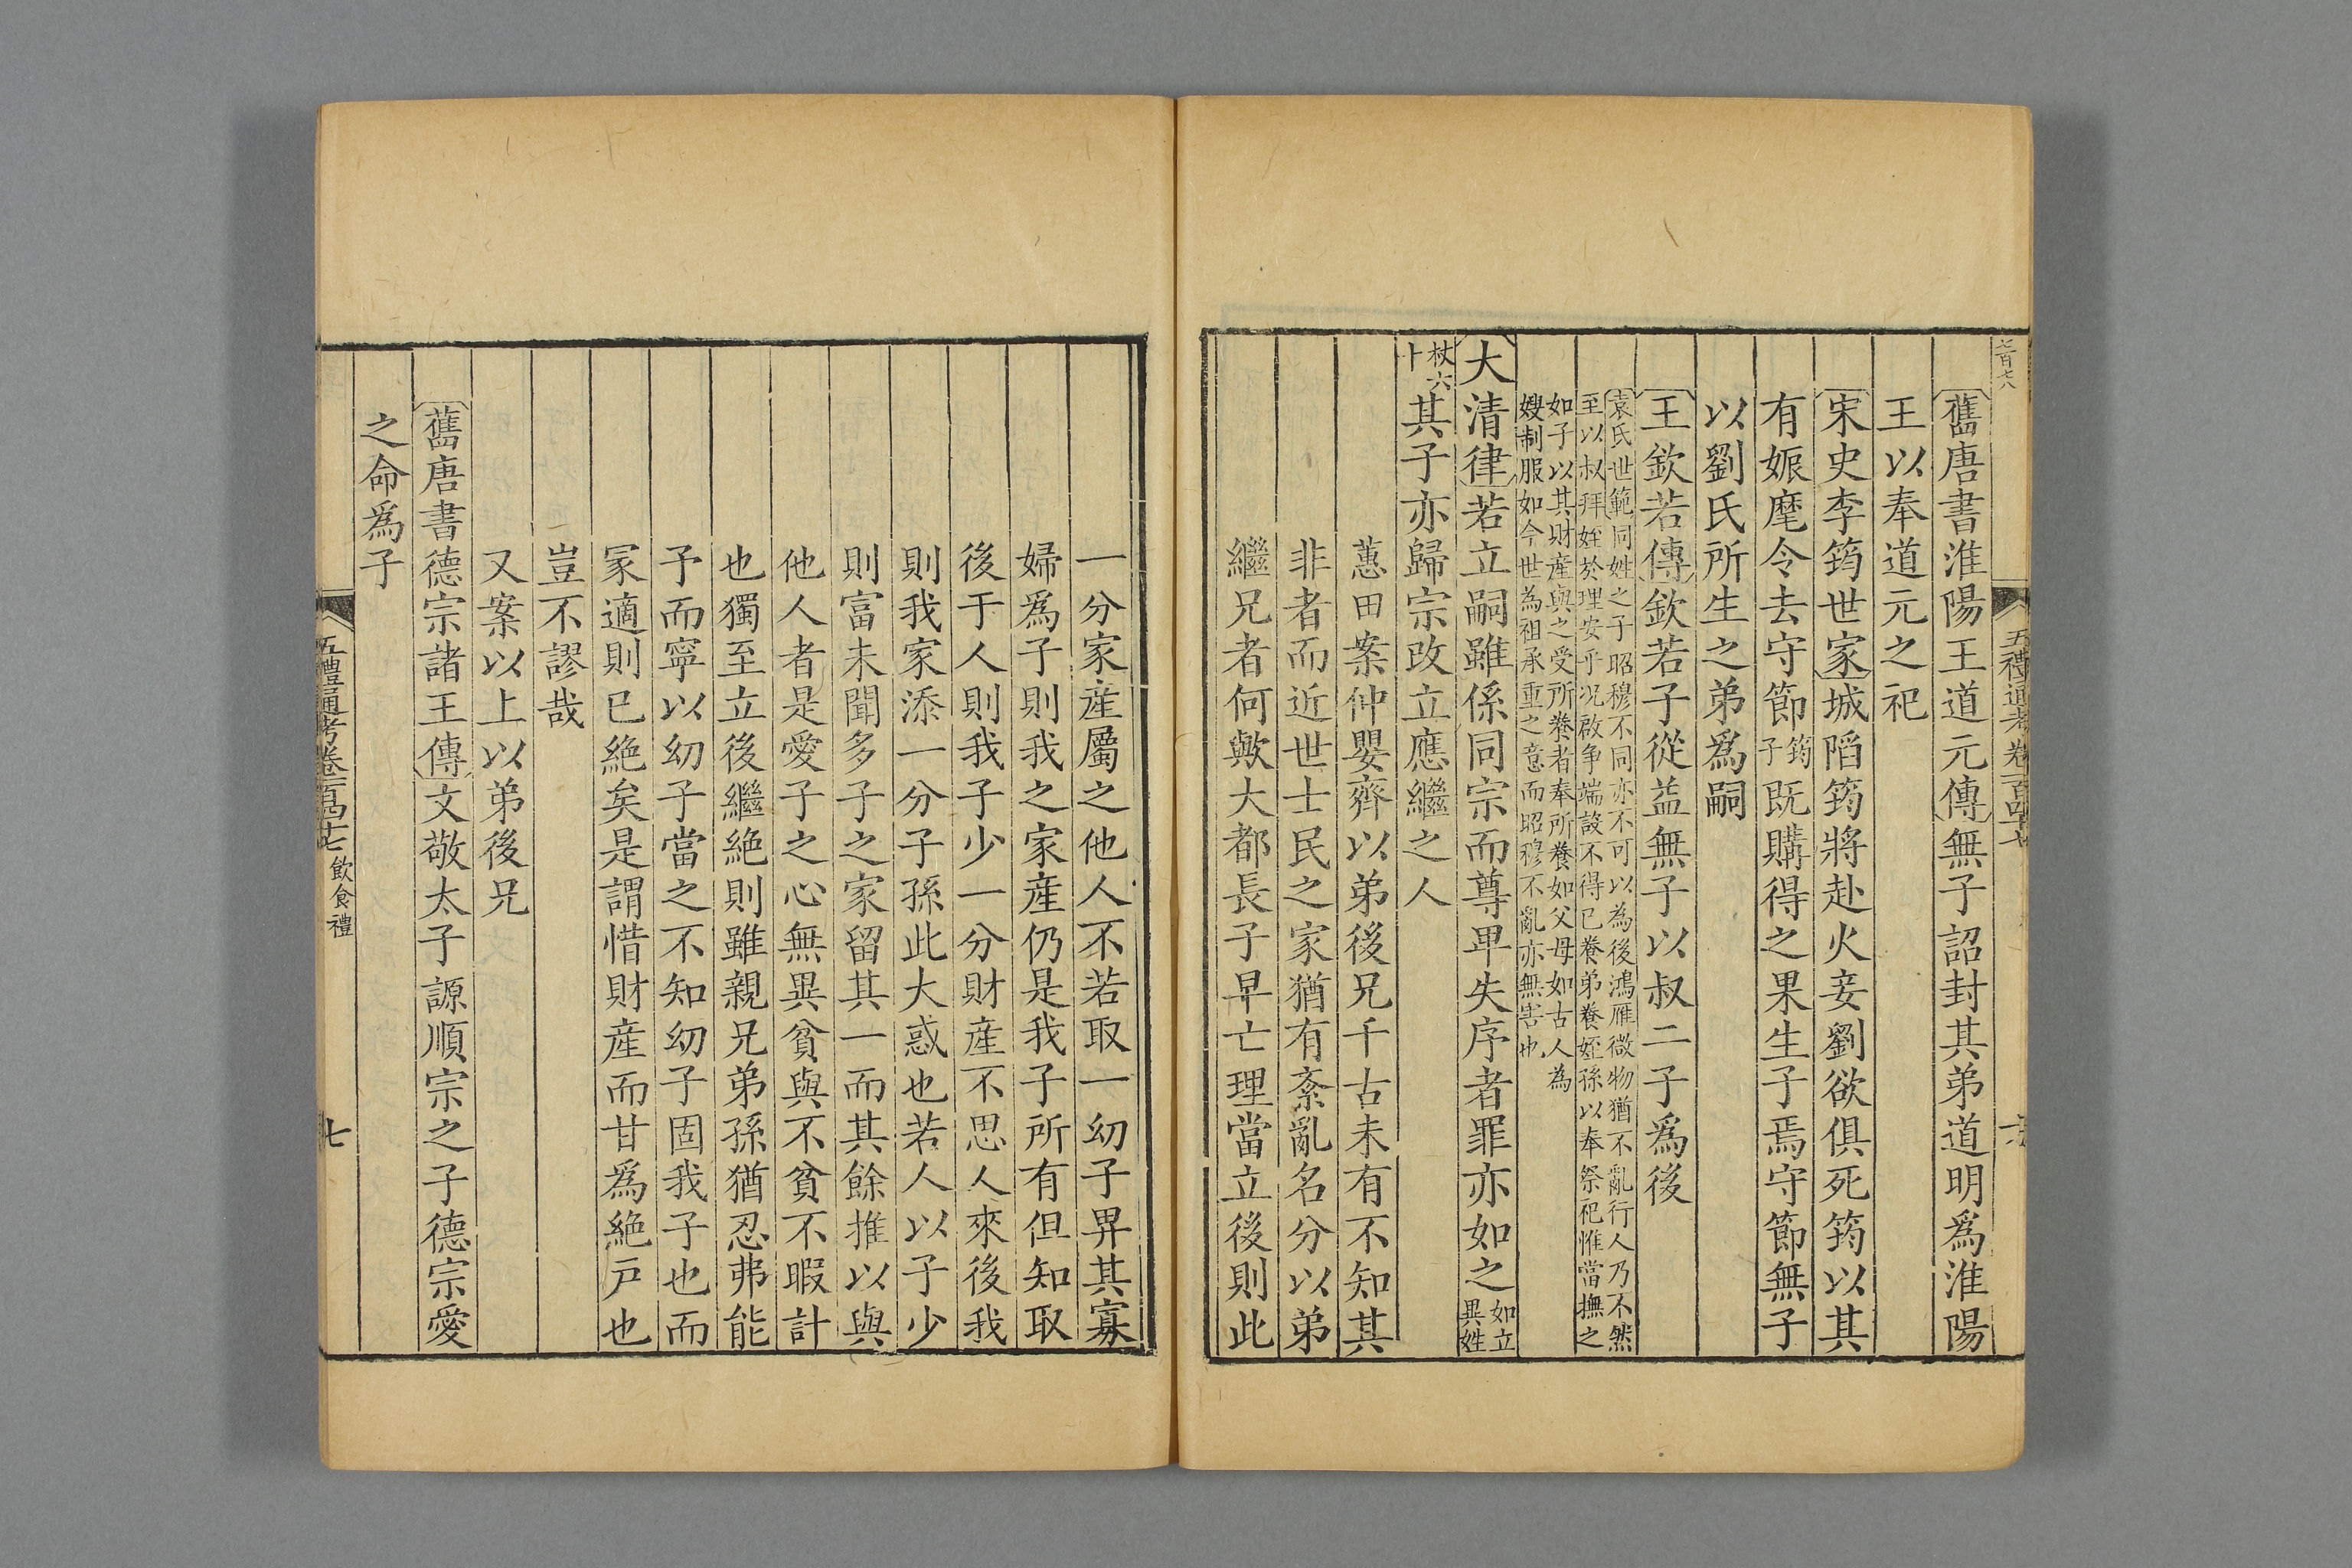 舊唐書淮陽王道元傳無子詔封其弟道明爲淮陽
王以奉道元之祀
宋史李筠世家城陷筠將赴火妾劉欲俱死筠以其
有娠麾令去守節筠子既購得之果生子焉守節無子
以劉氏所生之弟爲嗣
王欽若傳欽若子從益無子以叔二子爲後
袁氏世範同姓之子昭穆不同亦不可以為後鴻雁微物猶不亂行人乃不然
至以叔拜姪於理安乎况啟争端設不得已養弟養姪孫以奉祭祀惟當撫之
如子以其財産與之受所養者奉所養如父母如古人為
嫂制服如今世為祖承重之意而昭穆不亂亦無害也
大清律若立嗣雖係同宗而尊卑失序者罪亦如之如立
異姓
杖六
十其子亦歸宗改立應繼之人
蕙田案仲嬰齊以弟後兄千古未有不知其
非者而近世士民之家猶有紊亂名分以弟
繼兄者何歟大都長子早亡理當立後則此
一分家産屬之他人不若取一幼子畀其寡
婦爲子則我之家産仍是我子所有但知取
後于人則我子少一分財産不思人來後我
則我家添一分子孫此大惑也若人以子少
則富未聞多子之家留其一而其餘推以與
他人者是愛子之心無異貧與不貧不暇計
也獨至立後繼絶則雖親兄弟孫猶忍弗能
予而寧以幼子當之不知幼子固我子也而
冢適則已絶矣是謂惜財産而甘爲絶戸也
豈不謬哉
又案以上以弟後兄
舊唐書德宗諸王傳文敬太子謜順宗之子德宗愛
之命爲子
五禮通考卷一百四十七 飲食禮
七